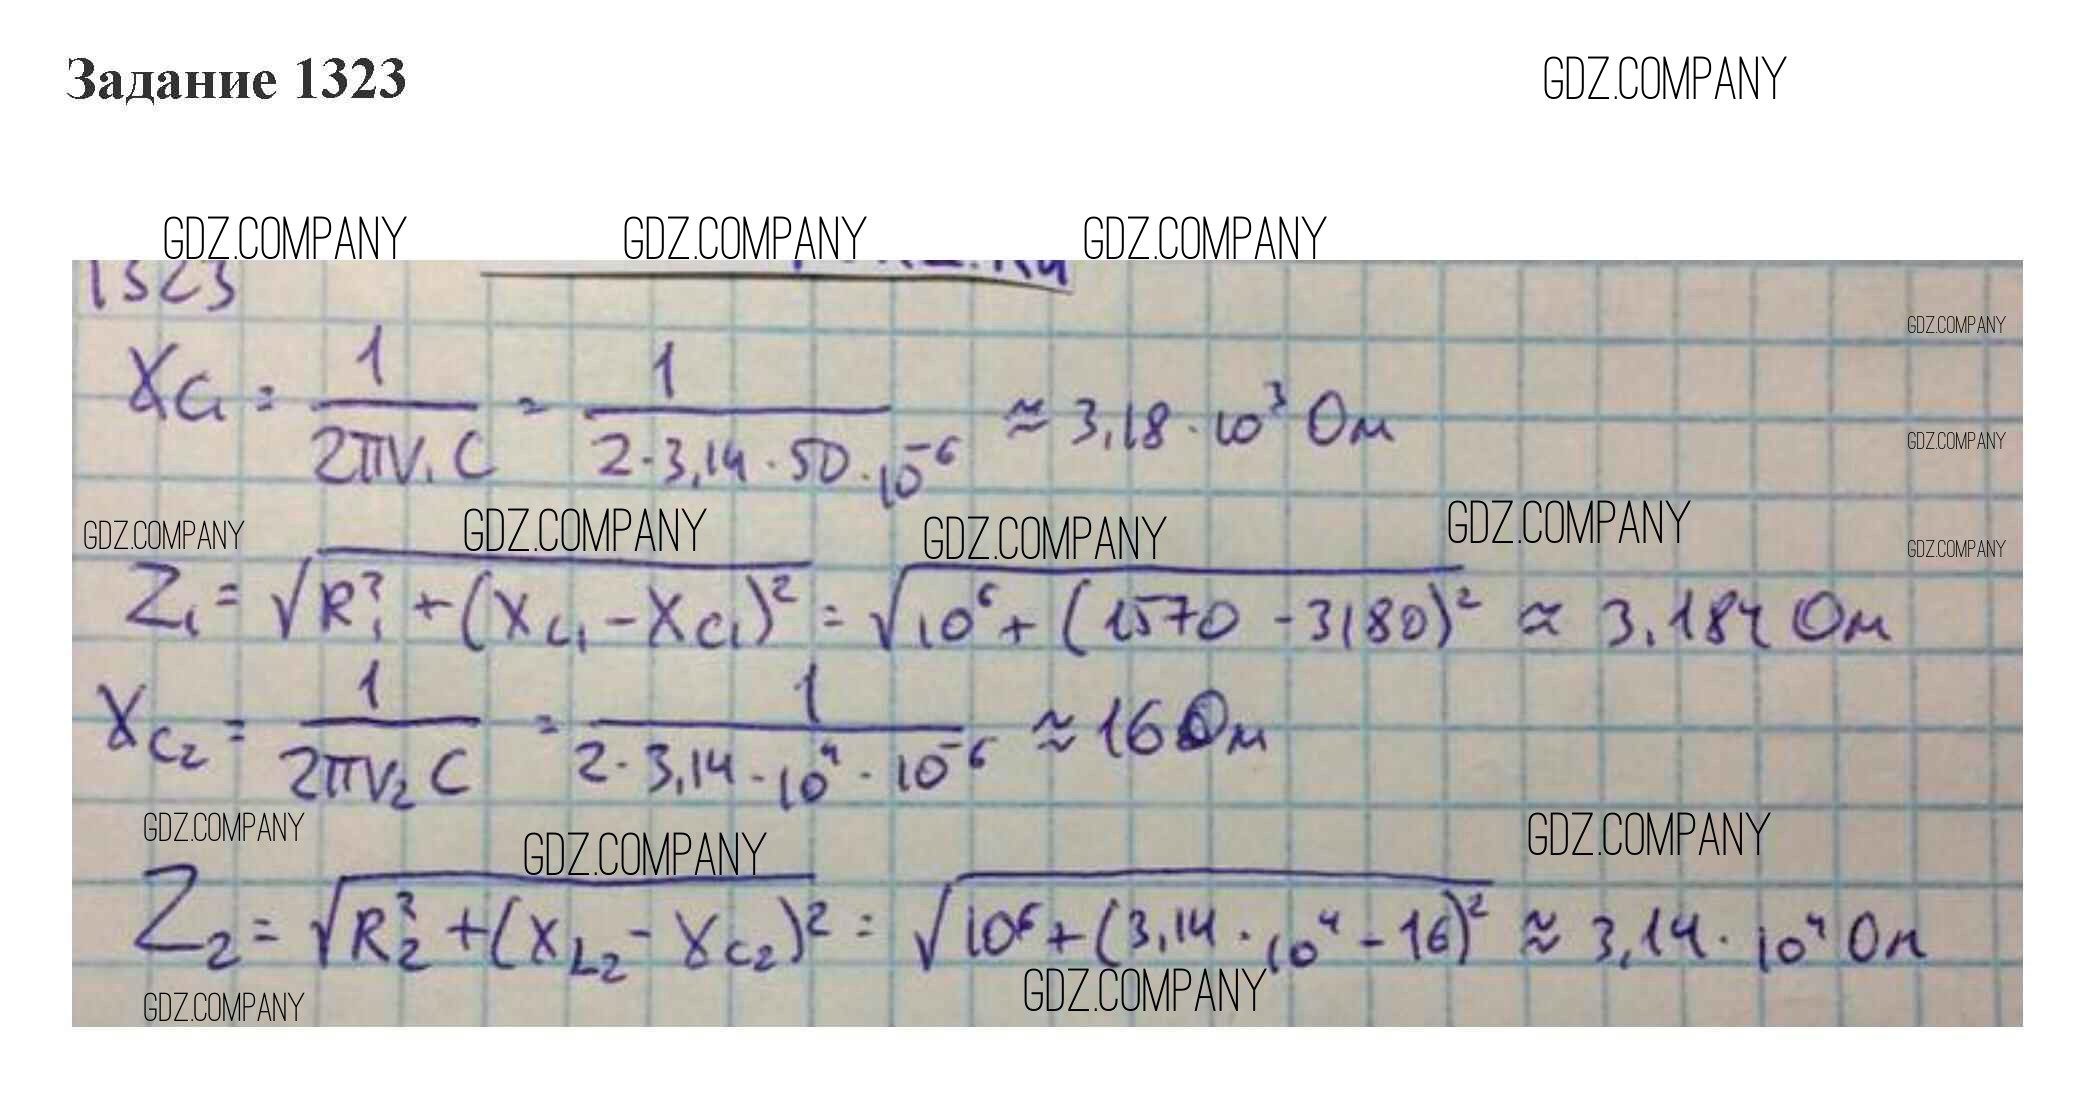 Задание 1323
GDZ.COMPANY
GDZ.COMPANY GDZ.COMPANY GDZ.COMPANY
1323
GDZ.COMPANY
X_C₁ = 1/(2πν₁C) = 1/(2·3,14·50·10⁻⁶) ≈ 3,18·10³ Ом
GDZ.COMPANY
GDZ.COMPANY GDZ.COMPANY GDZ.COMPANY GDZ.COMPANY
GDZ.COMPANY
Z₁ = √(R₁² + (X_L₁ − X_C₁)²) = √(10⁶ + (1570 − 3180)²) ≈ 3,184 Ом
X_C₂ = 1/(2πν₂C) = 1/(2·3,14·10⁴·10⁻⁶) ≈ 16 Ом
GDZ.COMPANY GDZ.COMPANY GDZ.COMPANY
Z₂ = √(R₂² + (X_L₂ − X_C₂)²) = √(10⁶ + (3,14·10⁴ − 16)²) ≈ 3,14·10⁴ Ом
GDZ.COMPANY GDZ.COMPANY